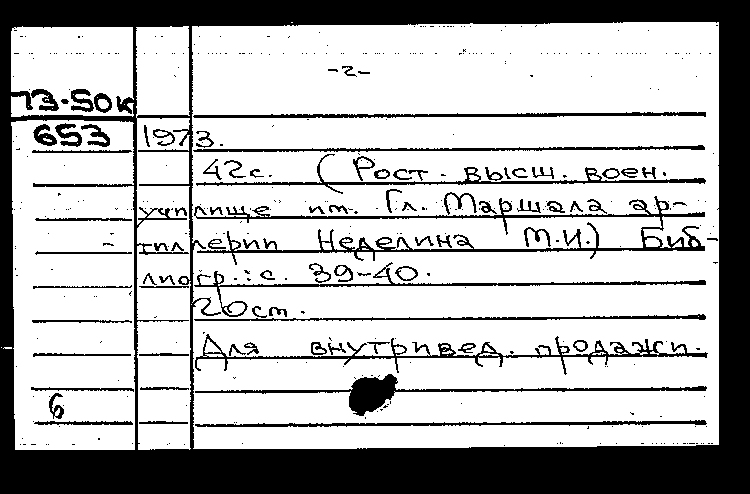 -2-
73-50к
653 1973.
42с. (Рост. высш. воен.
училище им. Гл. Маршала ар-
тиллерии Неделина М.И.) Биб-
лиогр.: с. 39-40.
26 см.
Для внутривед. продажи.
6